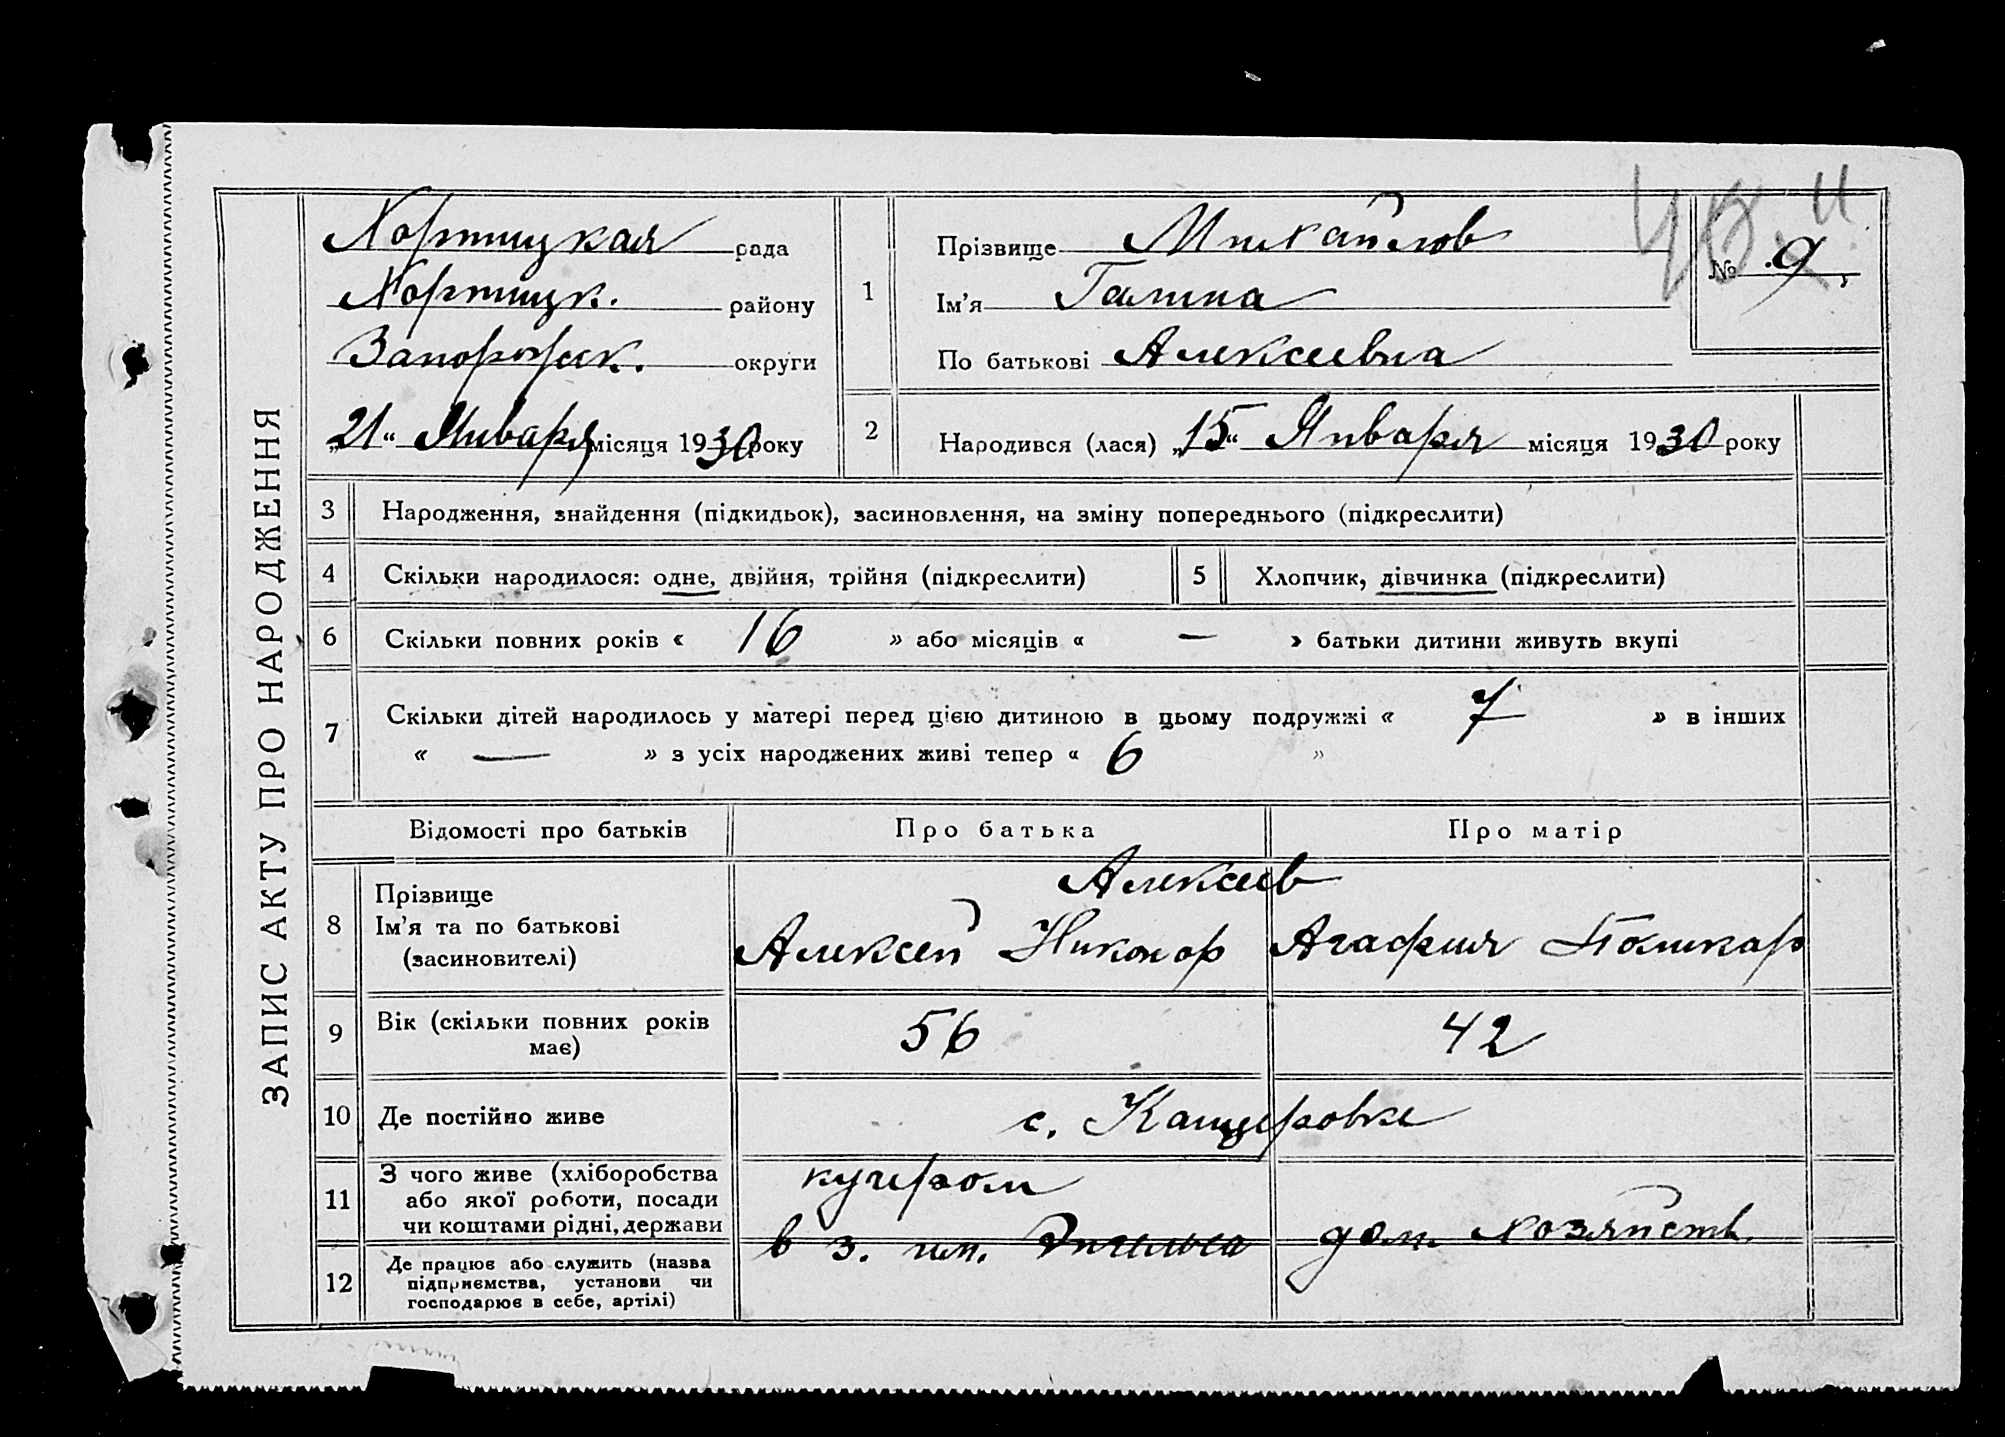 ЗАПИС АКТУ ПРО НАРОДЖЕННЯ
Хортицкая рада
Хортицк. району
Запорожск. округи
„21“ Января місяця 1930 року
1
Прізвище Михайлов
Ім'я Галина
По батькові Алексеевна
№ 9
2
Народився (лася) „15“ Января місяця 1930 року
3 Народження, знайдення (підкидьок), засиновлення, на зміну попереднього (підкреслити)
4 Скільки народилося: одне, двійня, трійня (підкреслити)
5 Хлопчик, дівчинка (підкреслити)
6 Скільки повних років « 16 » або місяців « — » батьки дитини живуть вкупі
7 Скільки дітей народилось у матері перед цією дитиною в цьому подружжі « 7 » в інших
« — » з усіх народжених живі тепер « 6 »
Відомості про батьків Про батька Про матір
8 Прізвище
Ім'я та по батькові
(засиновителі)
Алексеев
Алексей Никонор Агафия Поликар
9 Вік (скільки повних років
має)
56 42
10 Де постійно живе с. Канцеровке
11 З чого живе (хліборобства
або якої роботи, посади
чи коштами рідні, держави
кучером
12 Де працює або служить (назва
підприємства, установи чи
господарює в себе, артілі)
в з. им. Энгельса дом. хозяйств.